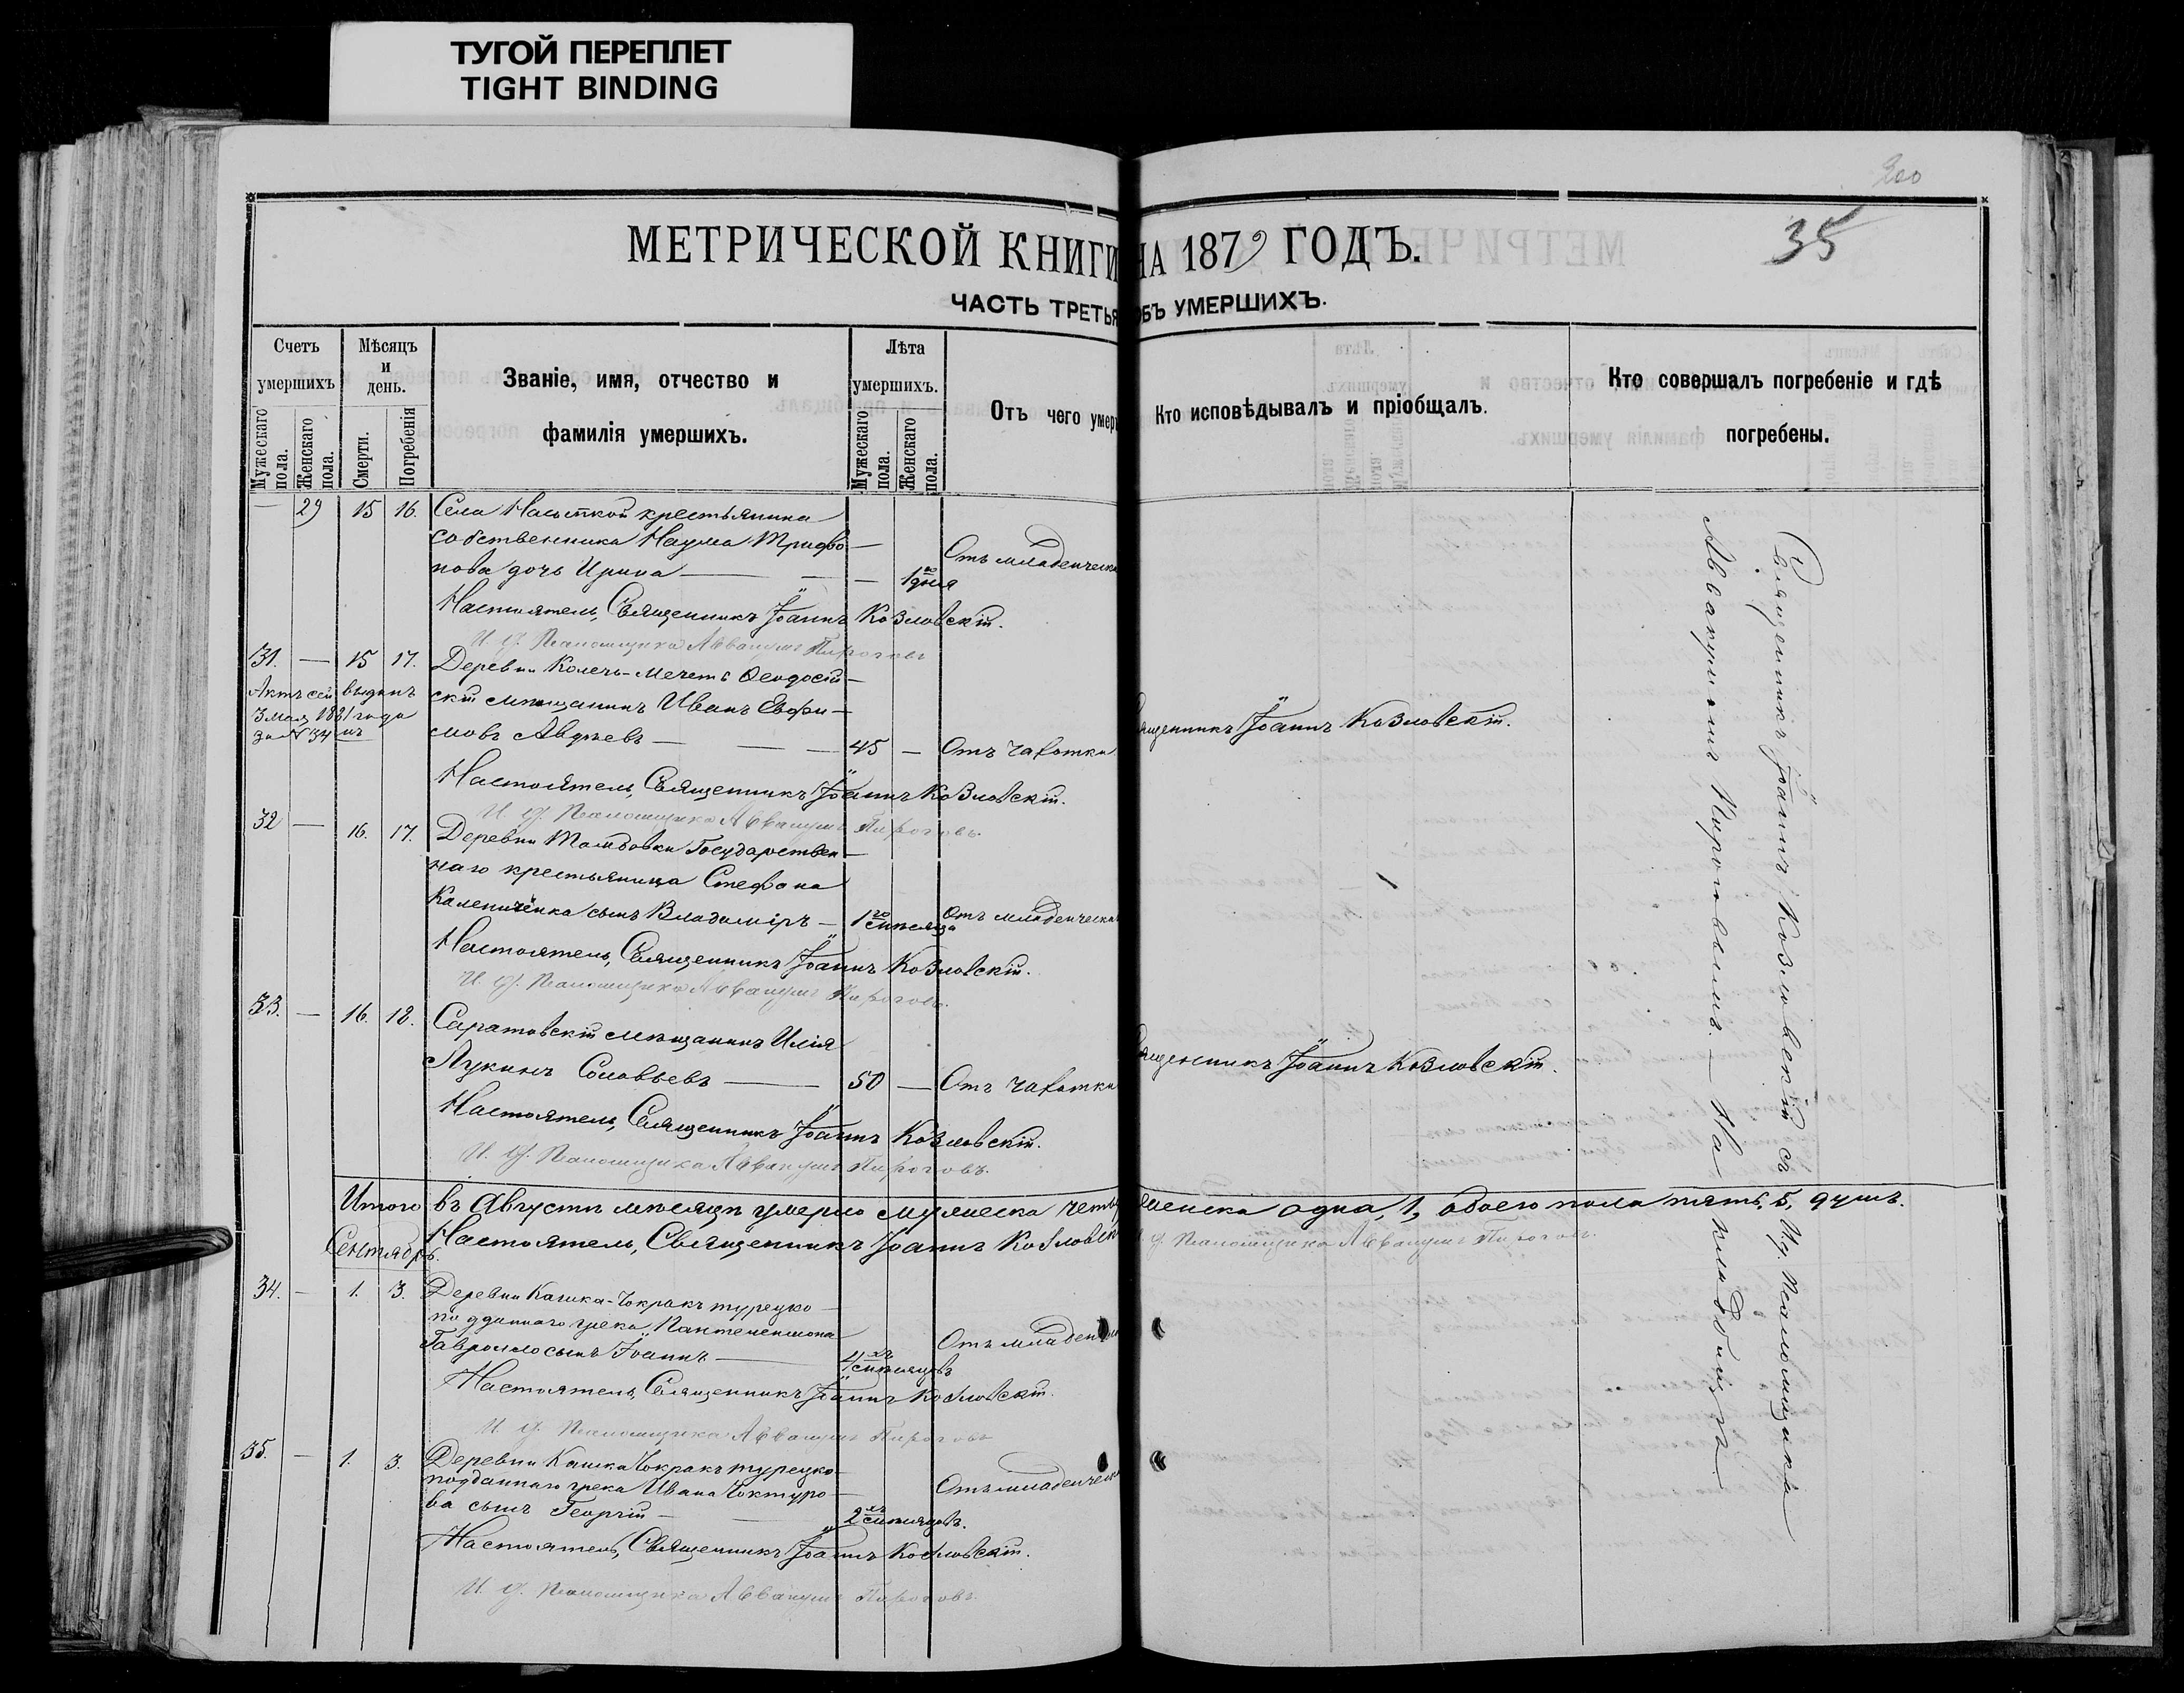 ТУГОЙ ПЕРЕПЛЕТ
TIGHT BINDING
200
35
МЕТРИЧЕСКОЙ КНИГИ НА 1879 ГОДЪ.
ЧАСТЬ ТРЕТЬЯ ОБЪ УМЕРШИХЪ.
Счетъ умершихъ
Мужескаго пола.
Женскаго пола.
Мѣсяцъ и день.
Смерти.
Погребенія
Званіе, имя, отчество и
фамилія умершихъ.
Лѣта умершихъ.
Мужескаго пола.
Женскаго пола.
Отъ чего умер
Кто исповѣдывалъ и пріобщалъ.
Кто совершалъ погребеніе и гдѣ
погребены.
— 29 15 16. Села крестьянина
собственника Наума Трифо—
нова дочь Ирина — — — 1го дня Отъ младенческ
Настоятель, Священникъ Іоаннъ Козловскій.
И. д. Псаломщика Аввакумъ Пироговъ
31. — 15 17. Деревни Колечь-Мечеть Ѳеодосій—
Актъ сей выданъ
3 мая 1881 года
за № 34мъ
скій мѣщанинъ Иванъ Евфи—
мовъ Авдѣевъ — — — 45 — Отъ чахотки
Священникъ Іоаннъ Козловскій.
Настоятель, Священникъ Іоаннъ Козловскій.
И. д. Псаломщика Аввакумъ Пироговъ.
32 — 16. 17. Деревни Государствен—
наго крестьянина Стефана
сынъ Владиміръ — 1го мѣсяца Отъ младенческ
Настоятель, Священникъ Іоаннъ Козловскій.
И. д. Псаломщика Аввакумъ Пироговъ.
33. — 16. 18. Саратовскій мѣщанинъ Илія
Лукинъ Соловьевъ — 50 — Отъ чахотки
Священникъ Іоаннъ Козловскій.
Настоятель, Священникъ Іоаннъ Козловскій.
И. д. Псаломщика Аввакумъ Пироговъ.
Итого въ Августѣ мѣсяцѣ умерло мужеска четы женска одна, 1, обоего пола пять, 5, душъ.
Настоятель, Священникъ Іоаннъ Козловск И. д. Псаломщика Аввакумъ Пироговъ.
Сентябрь.
34. — 1. 3. Деревни Кашка-Чокракъ турецко—
подданнаго грека
сынъ Іоаннъ — 4хъ мѣсяцовъ Отъ младен
Настоятель, Священникъ Іоаннъ Козловскій.
И. д. Псаломщика Аввакумъ Пироговъ
35. — 1. 3. Деревни Кашка Чокракъ турецко—
подданнаго грека Ивана Чоктуро—
ва сынъ Георгій — — 2хъ мѣсяцовъ. Отъ младенческ
Настоятель, Священникъ Іоаннъ Козловскій.
И. д. Псаломщика Аввакумъ Пироговъ.
Священникъ Іоаннъ Козловскій съ И. д. Псаломщика
Аввакумомъ Пироговымъ. — На кладбищѣ —